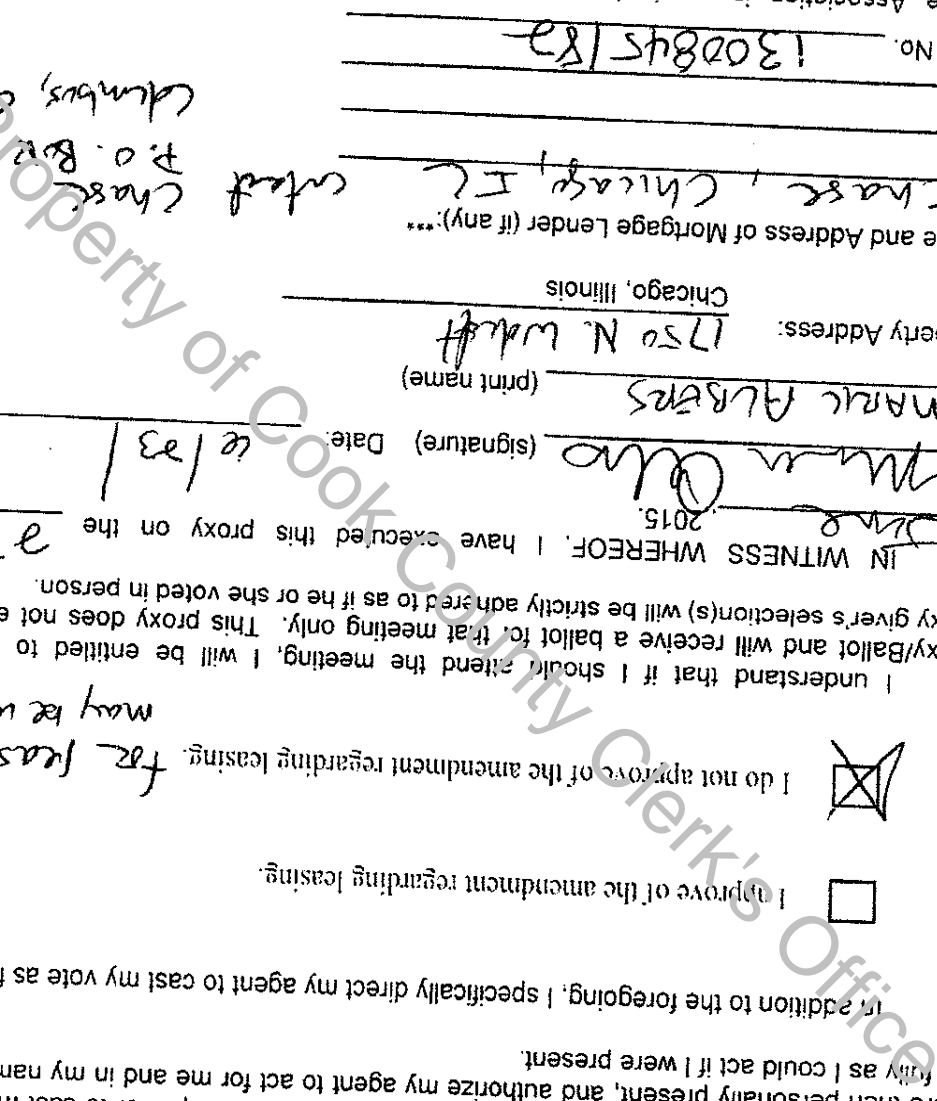 then personally present, and authorize my agent to act for me and in my nam
fully as I could act if I were present.
In addition to the foregoing, I specifically direct my agent to cast my vote as f
I approve of the amendment regarding leasing.
I do not approve of the amendment regarding leasing. For
may be
I understand that if I should attend the meeting, I will be entitled to
xy/Ballot and will receive a ballot for that meeting only. This proxy does not e
xy giver's selection(s) will be strictly adhered to as if he or she voted in person.
IN WITNESS WHEREOF, I have executed this proxy on the 2
June, 2015.
(signature) Date:
MARK ALBERS (print name)
erty Address: 1750 N. Wolcott
Chicago, Illinois
e and Address of Mortgage Lender (if any):***
Chase, Chicago, IL contact Chase
P.O. Box
Columbus,
No. 1300845182
e Association
Property of Cook County Clerk's Office